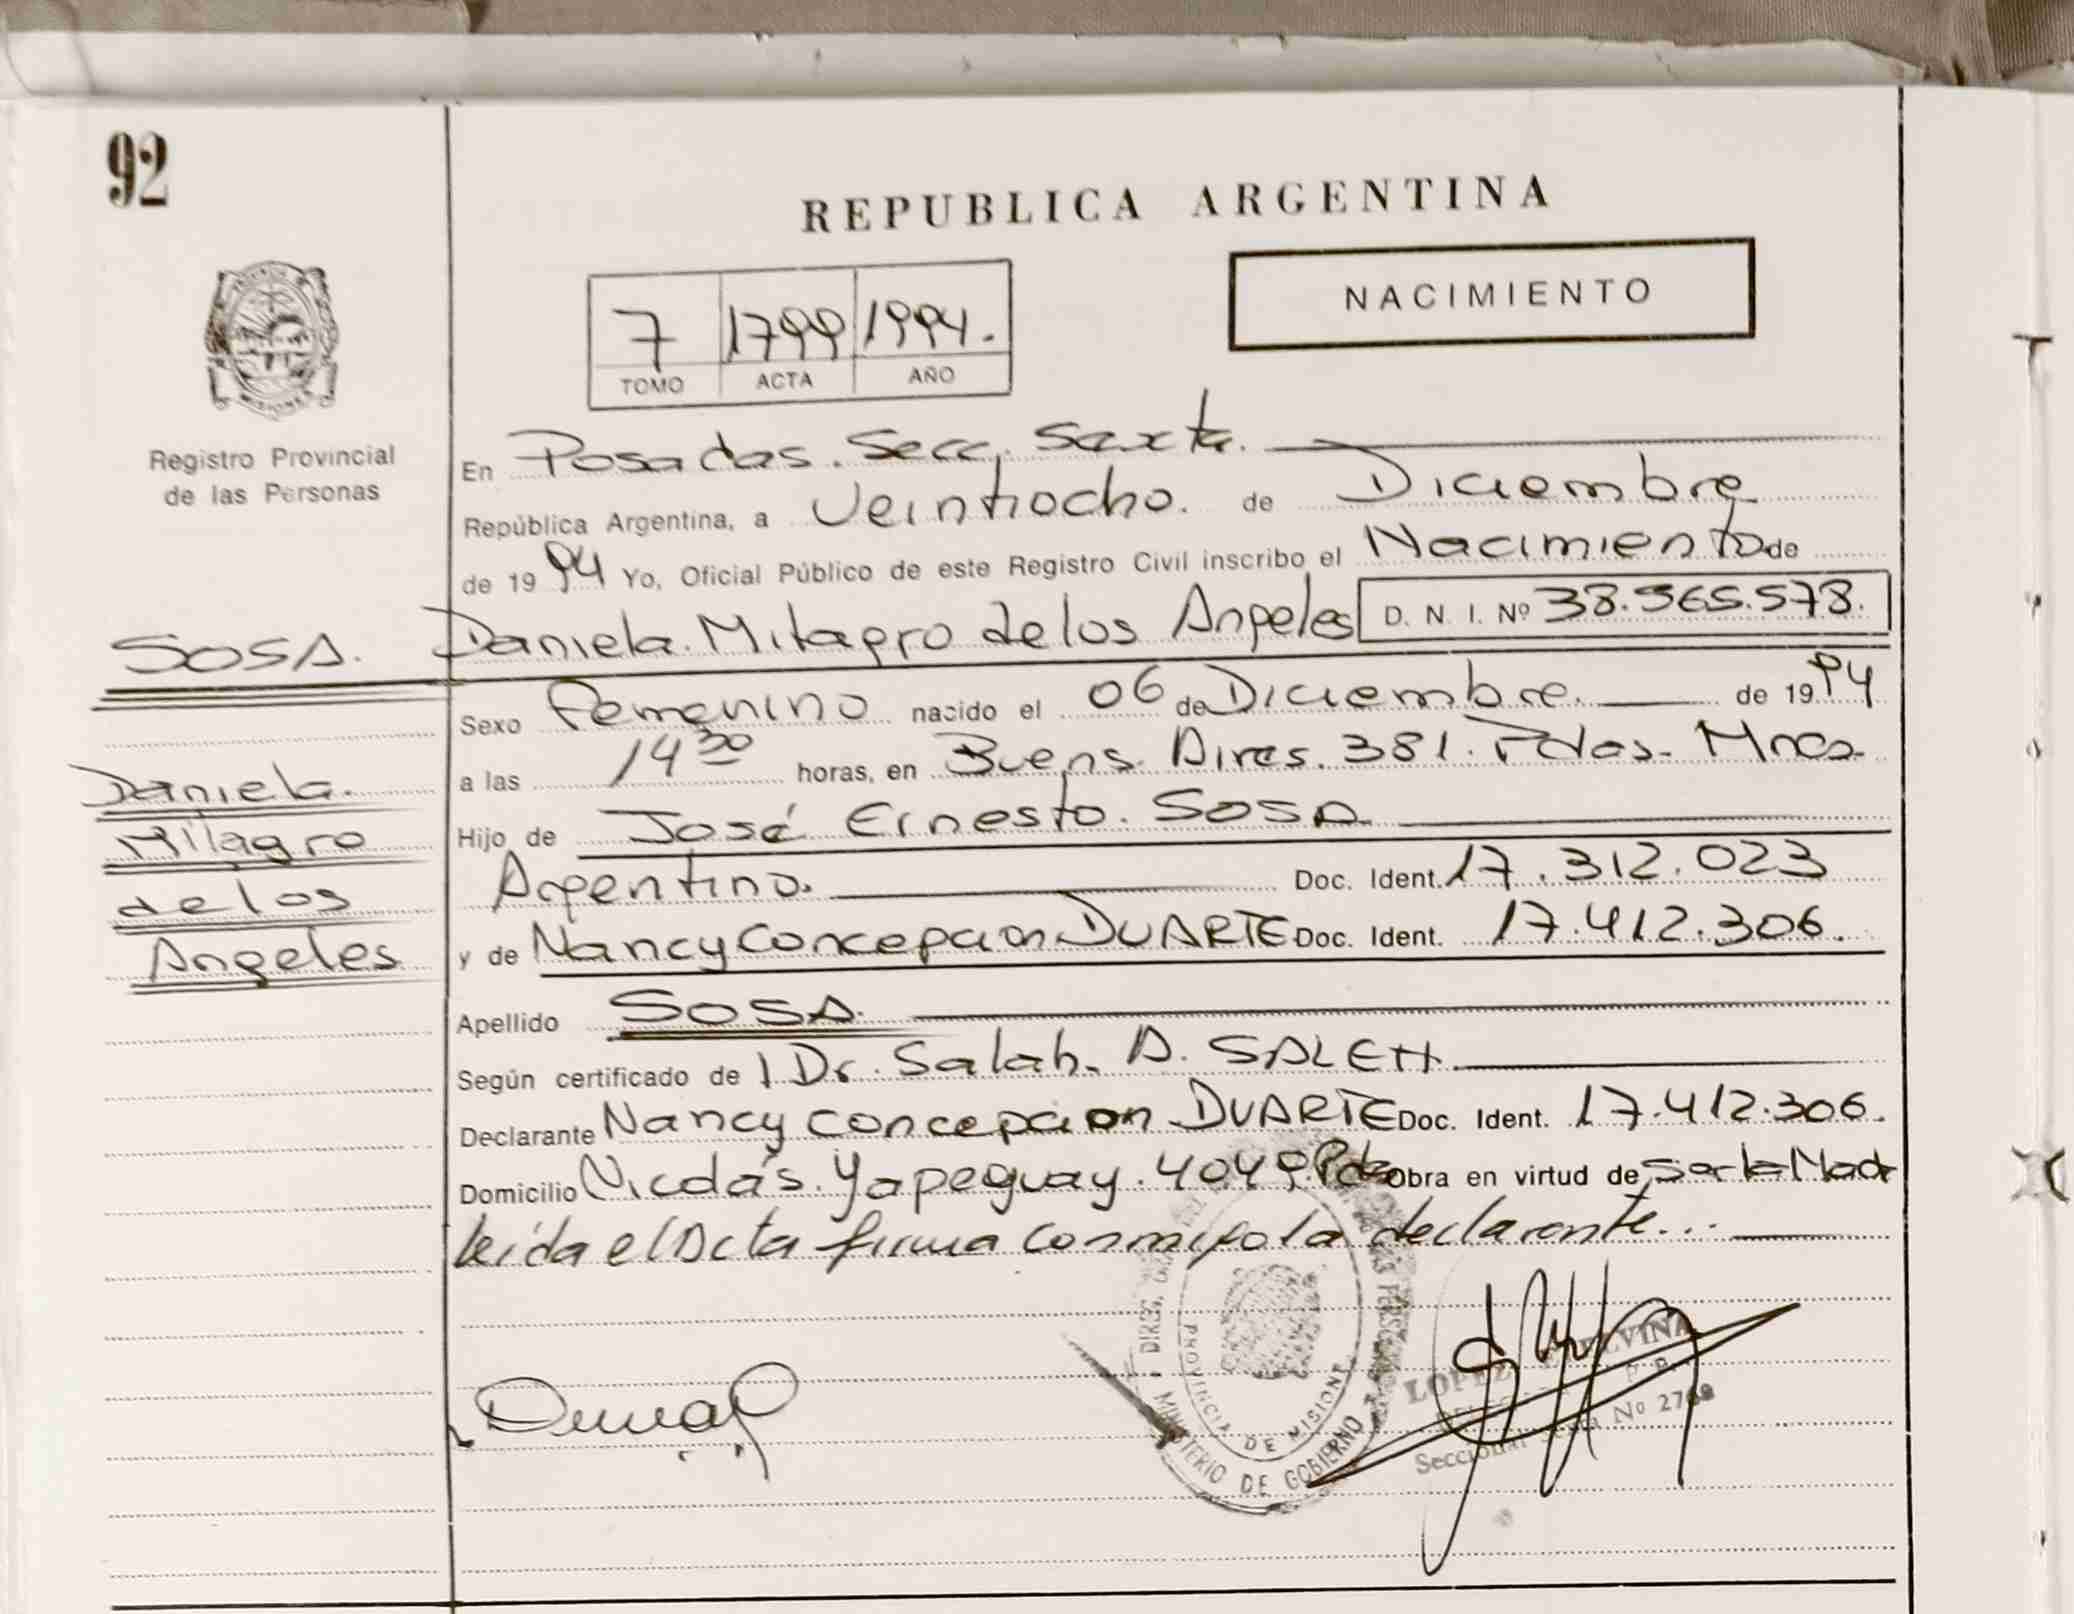 92
REPUBLICA ARGENTINA
NACIMIENTO
7 1799 1994.
TOMO ACTA AÑO
Registro Provincial
de las Personas
MISIONES
En Posadas. Secc. Sexta.
República Argentina, a Veintiocho. de Diciembre
de 1994 Yo, Oficial Público de este Registro Civil inscribo el Nacimiento de
SOSA. Daniela. Milagro de los Angeles D. N. I. Nº 38.565.578.
Sexo Femenino nacido el 06 de Diciembre. de 1994
a las 14 30 horas, en Buens. Aires. 381. Pdas. Mnes.
Daniela.
Milagro
de los
Angeles
Hijo de José Ernesto. SOSA
Argentino. Doc. Ident. 17.312.023
y de Nancy Concepcion DUARTE Doc. Ident. 17.412.306.
Apellido SOSA.
Según certificado de 1 Dr. Salah. A. SALEH.
Declarante Nancy Concepcion DUARTE Doc. Ident. 17.412.306.
Domicilio Nicolás. Yapeguay. 4049. Pdas Obra en virtud de Ser la Madre
leída el Acta firma conmigo la declarante...
PROVINCIA DE MISIONES
MINISTERIO DE GOBIERNO
LOPEZ
Seccional Sexta Nº